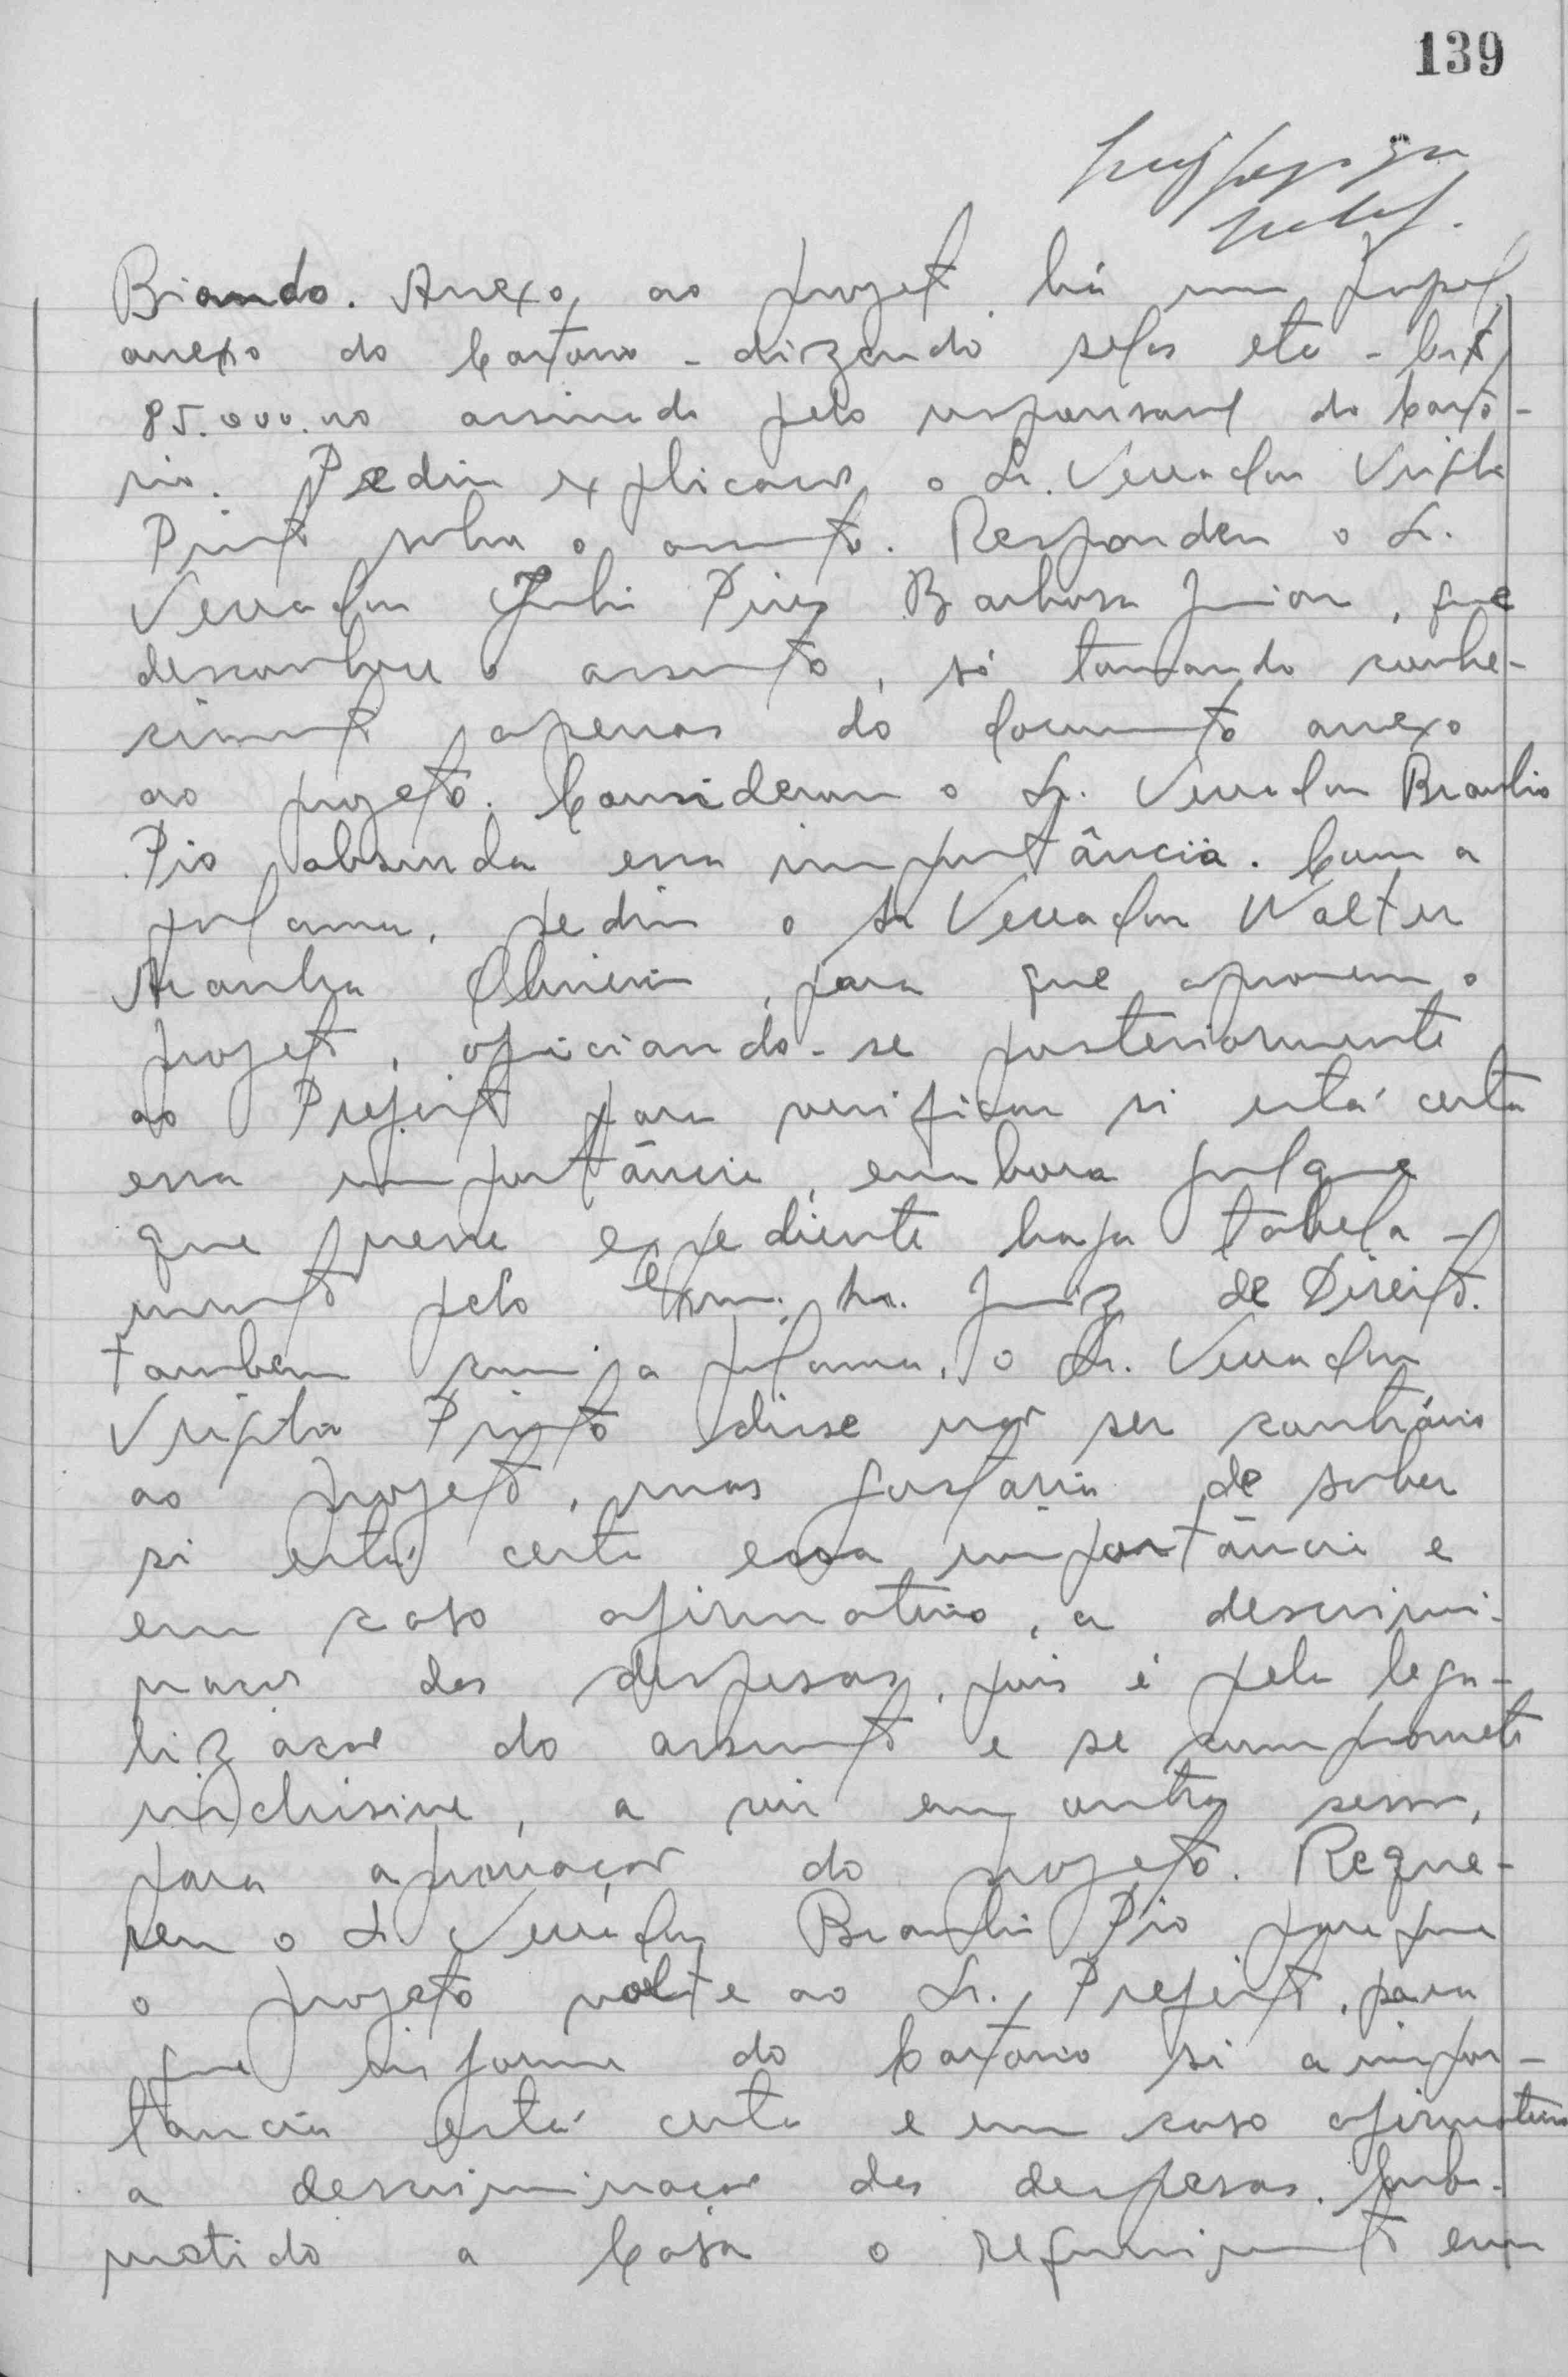 139
Biando. Anexo ao projeto há um papel
anexo do Cartorio - dizendo selos etc - Cr$
85.000.00 assinado pelo responsavel do Cartó-
rio. Pediu explicacões o Sr. Vereador
Pinto sobre o assunto. Respondeu o Sr.
Vereador Julio Pires Barbosa Junior, que
desconhece o assunto, só tomando conhe-
cimento apenas do documento anexo
ao projeto. Considerou o Sr. Vereador Braulio
Pio absurda essa importância. Com a
palavra, pediu o Sr Vereador Walter
Aranha Oliveira, para que aprovem o
projeto, oficiando-se posteriormente
ao Prefeito para verificar si está certa
essa importância, embora julgue
que nesse expediente haja tabela-
mento pelo Exmo. Sr. Juiz de Direito.
Tambem com a palavra, o Sr. Vereador
Pinto disse não ser contrário
ao projeto, mas gostaria de saber
si está certa essa importância e
em caso afirmativo, a descrimi-
nação das despesas, pois é pela lega-
lização do assunto e se compromete
inclusive, a vir em outra sessão,
para aprovação do projeto. Reque-
reu o Sr Vereador Braulio Pio para que
o projeto volte ao Sr. Prefeito, para
que informe do Cartorio si a impor-
tancia está certa e em caso afirmativo
a descriminação das despesas. Sub-
metido a Casa o requerimento em